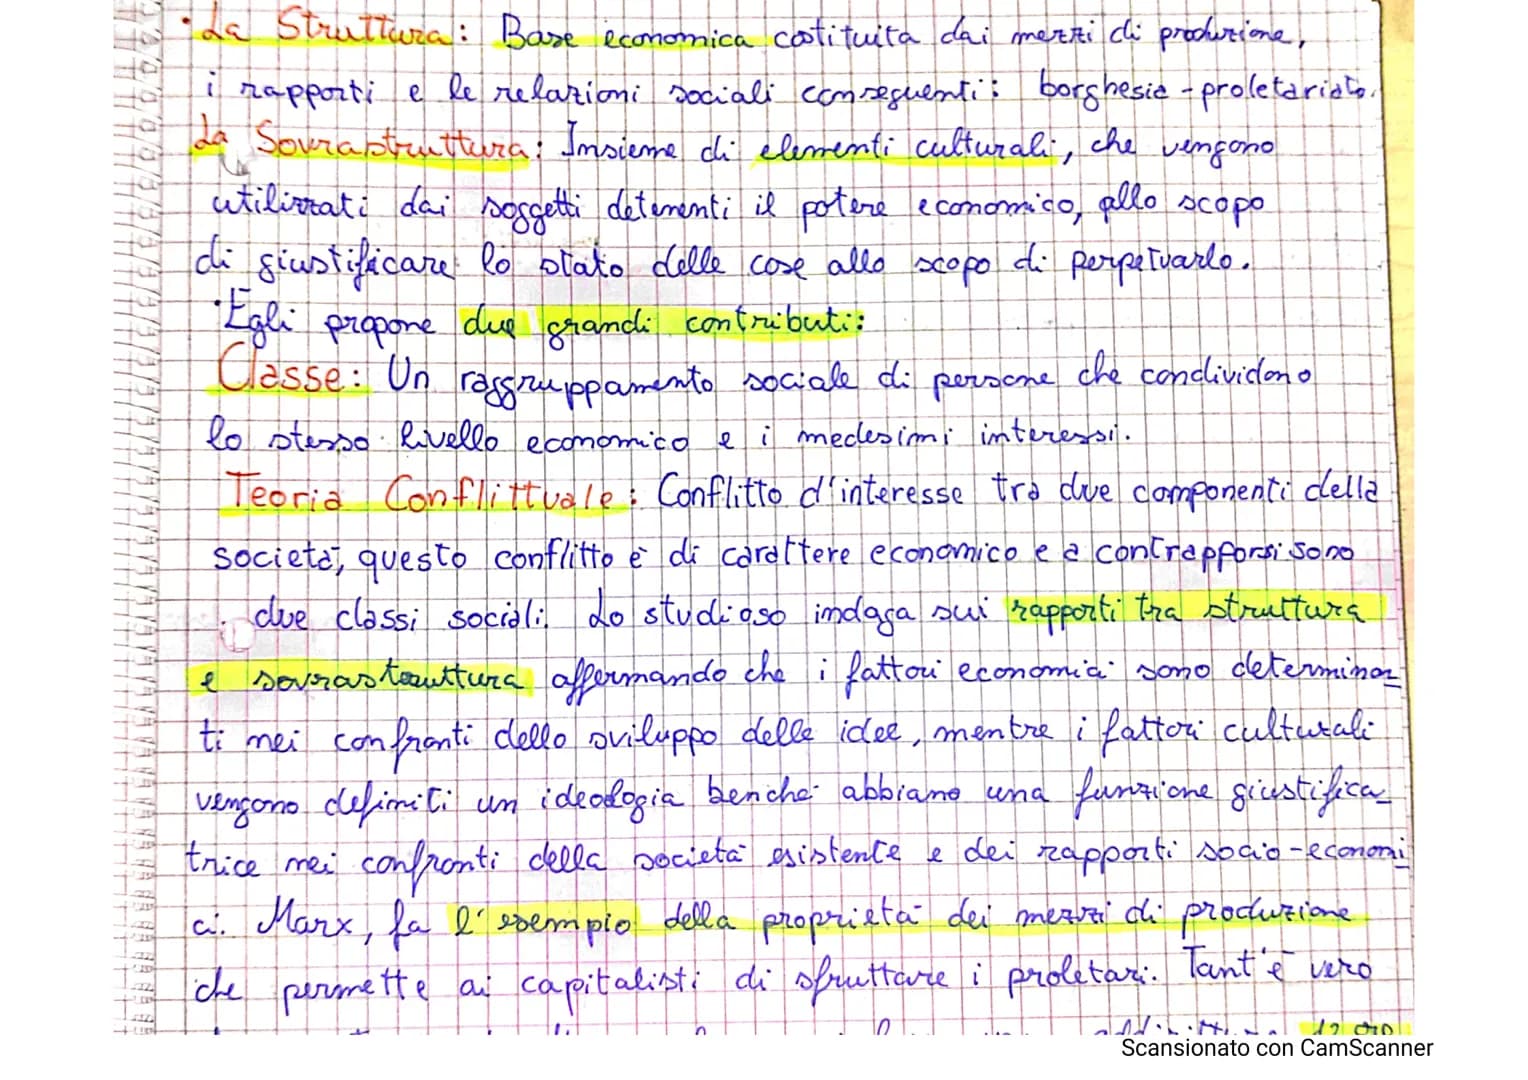 • La Struttura: Base economica costituita dai mezzi di produzione,
i rapporti e le relazioni sociali conseguenti: borghesia - proletariato.
La Sovrastruttura: Insieme di elementi culturali, che vengono
utilizzati dai soggetti detenenti il potere economico, allo scopo
di giustificare lo stato delle cose allo scopo di perpetuarlo.
• Egli propone due grandi contributi:
Classe: Un raggruppamento sociale di persone che condividono
lo stesso livello economico e i medesimi interessi.
Teoria Conflittuale: Conflitto d'interesse tra due componenti della
società, questo conflitto è di carattere economico e a contrapporsi sono
due classi sociali. Lo studioso indaga sui rapporti tra struttura
e sovrastruttura affermando che i fattori economici sono determinan
ti nei confronti dello sviluppo delle idee, mentre i fattori culturali
vengono definiti un ideologia benche abbiano una funzione giustifica_
trice nei confronti della società esistente e dei rapporti socio-economi
ci. Marx, fa l'esempio della proprietà dei mezzi di produzione
che permette ai capitalisti di sfruttare i proletari. Tant'è vero
Scansionato con CamScanner